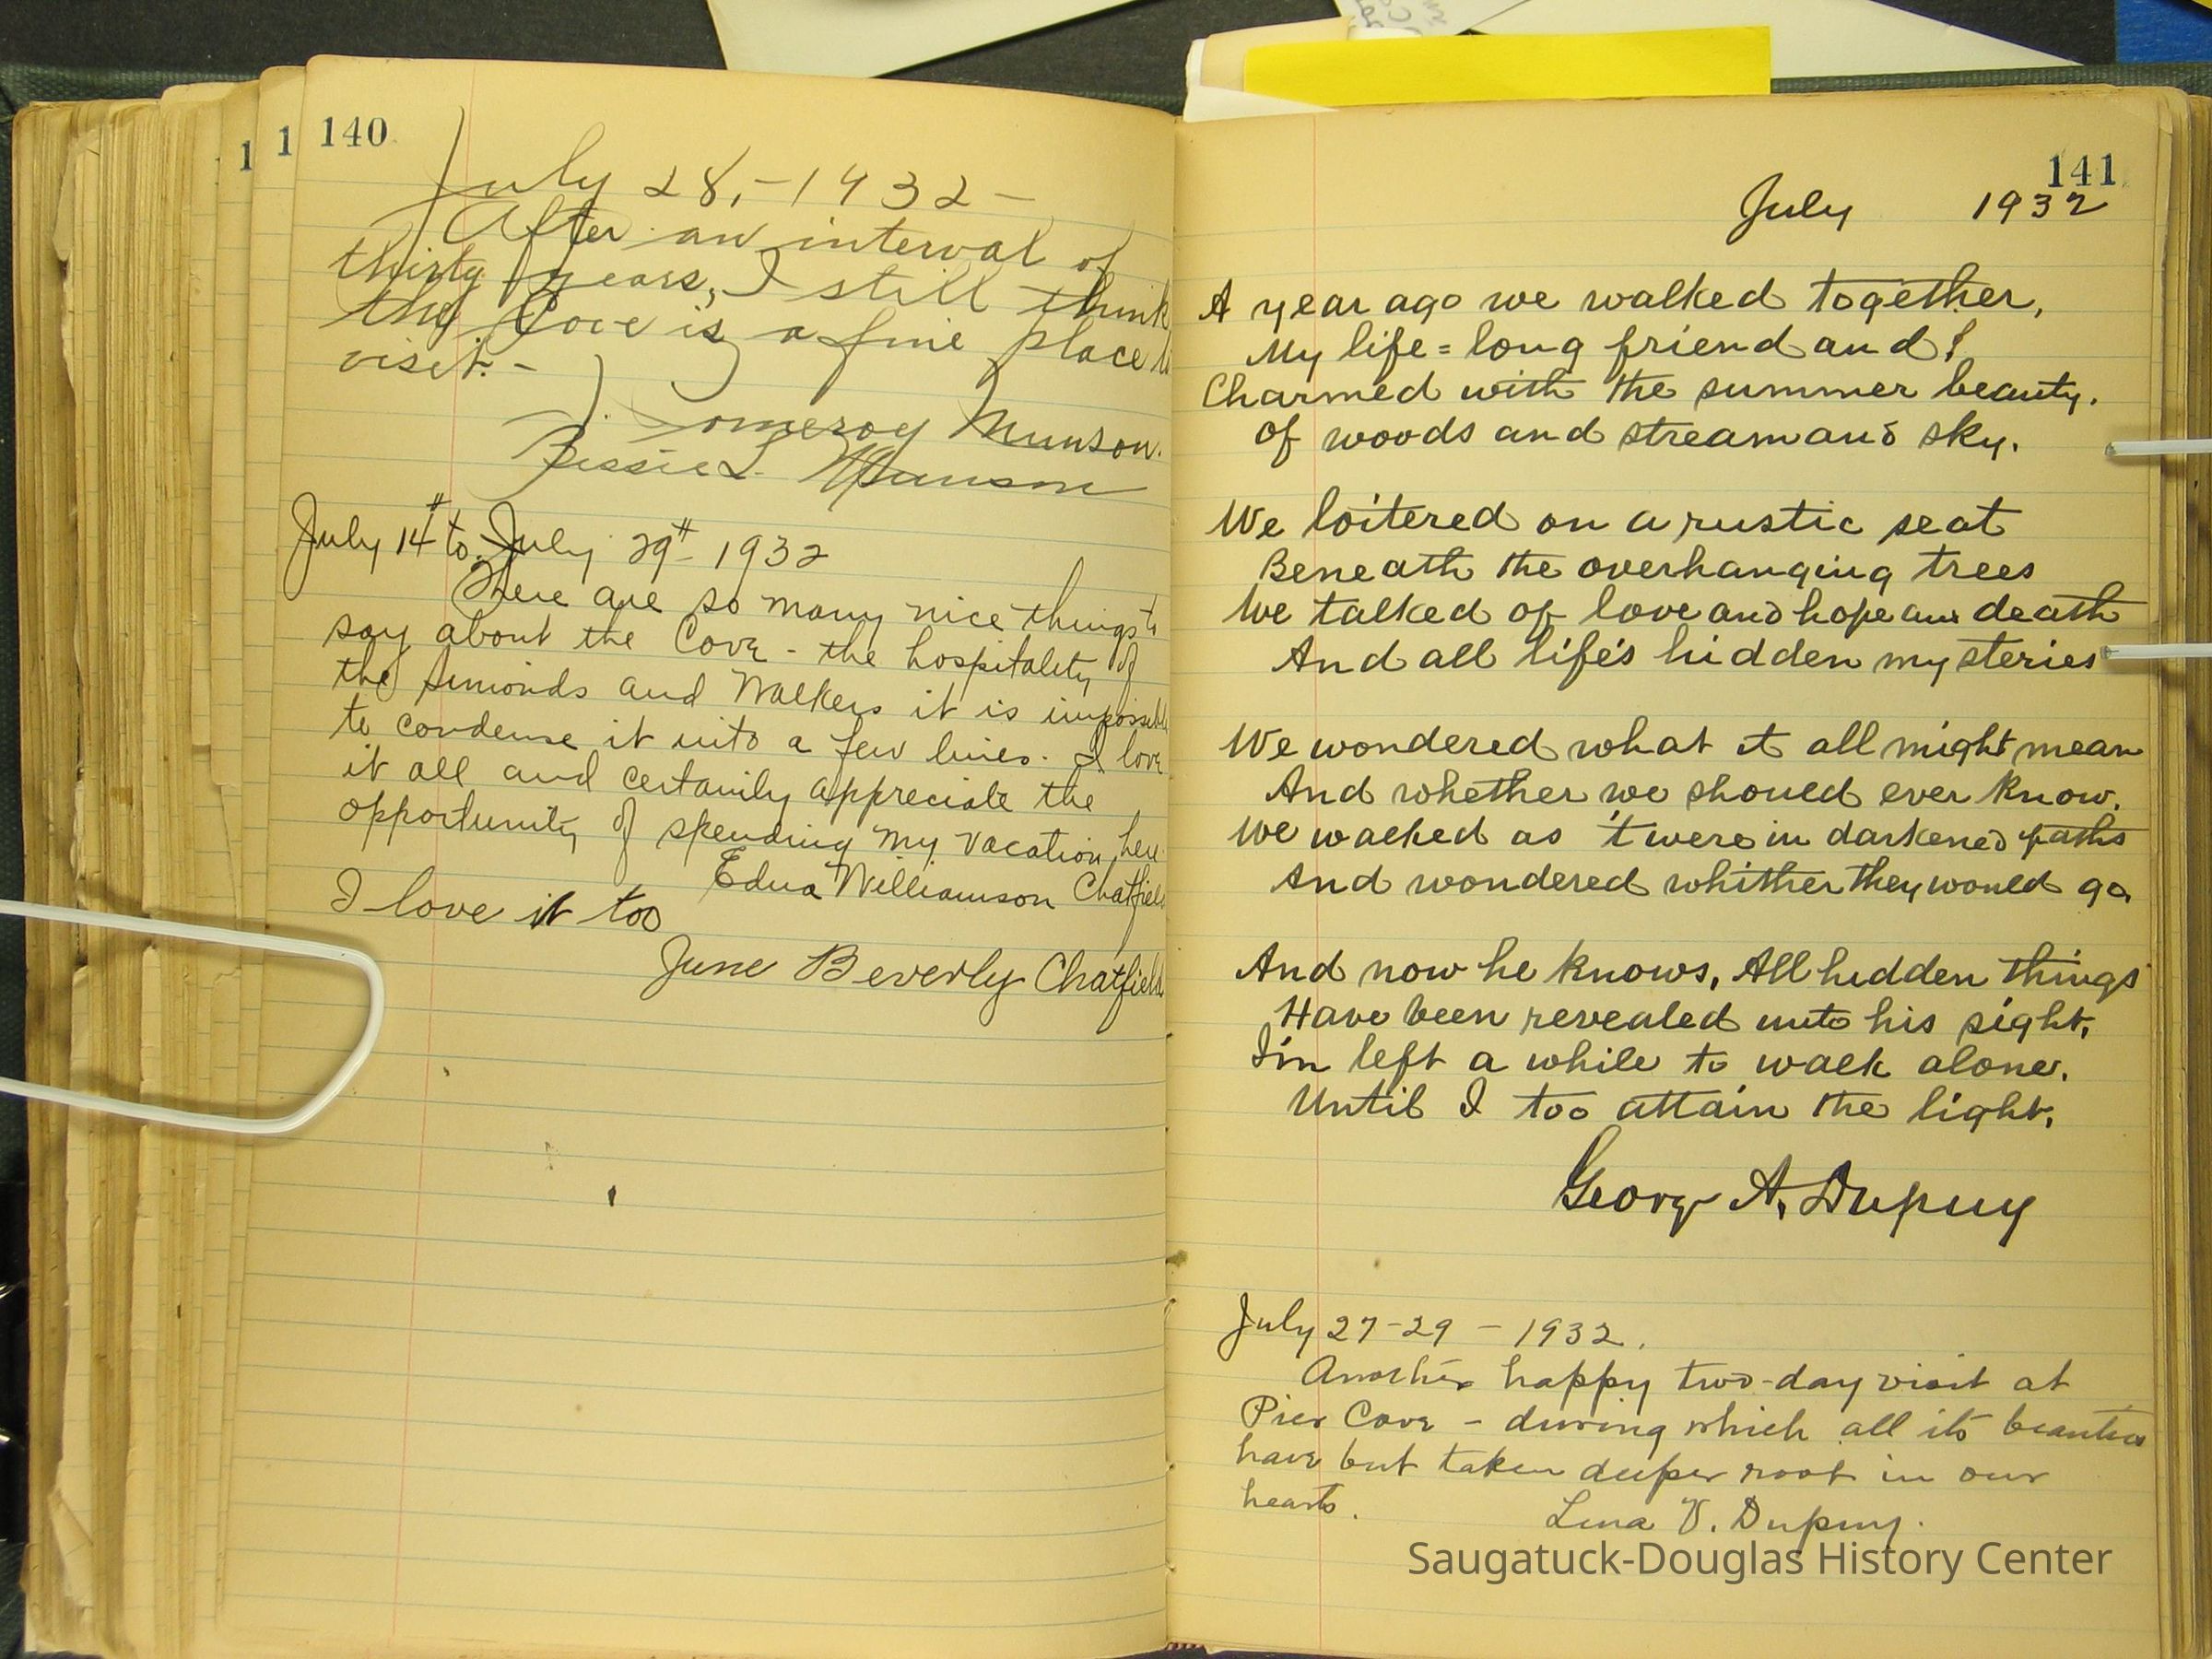 1
1
140
July 28, - 1932 -
After an interval of
thirty years, I still think
the Cove is a fine place to
visit. -
J. Pomeroy Munson.
Bessie L. Munson
July 14th to July 29th - 1932
There are so many nice things to
say about the Cove - the hospitality of
the Simonds and Walkers it is impossible
to condense it into a few lines. I love
it all and certainly appreciate the
opportunity of spending my vacation here
Edna Williamson Chatfield
I love it too
June Beverly Chatfield
141
July 1932
A year ago we walked together,
My life=long friend and I
Charmed with the summer beauty.
of woods and stream and sky.
We loitered on a rustic seat
Beneath the overhanging trees
We talked of love and hope and death
And all life's hidden mysteries
We wondered what it all might mean
And whether we should ever know.
We walked as 't were in darkened paths
And wondered whither they would go.
And now he knows, All hidden things
Have been revealed unto his sight,
I'm left a while to walk alone.
Until I too attain the light.
George A. Dupuy
July 27-29 - 1932.
Another happy two-day visit at
Pier Cove - during which all its beauties
have but taken deeper root in our
hearts.
Lena V. Dupuy.
Saugatuck-Douglas History Center